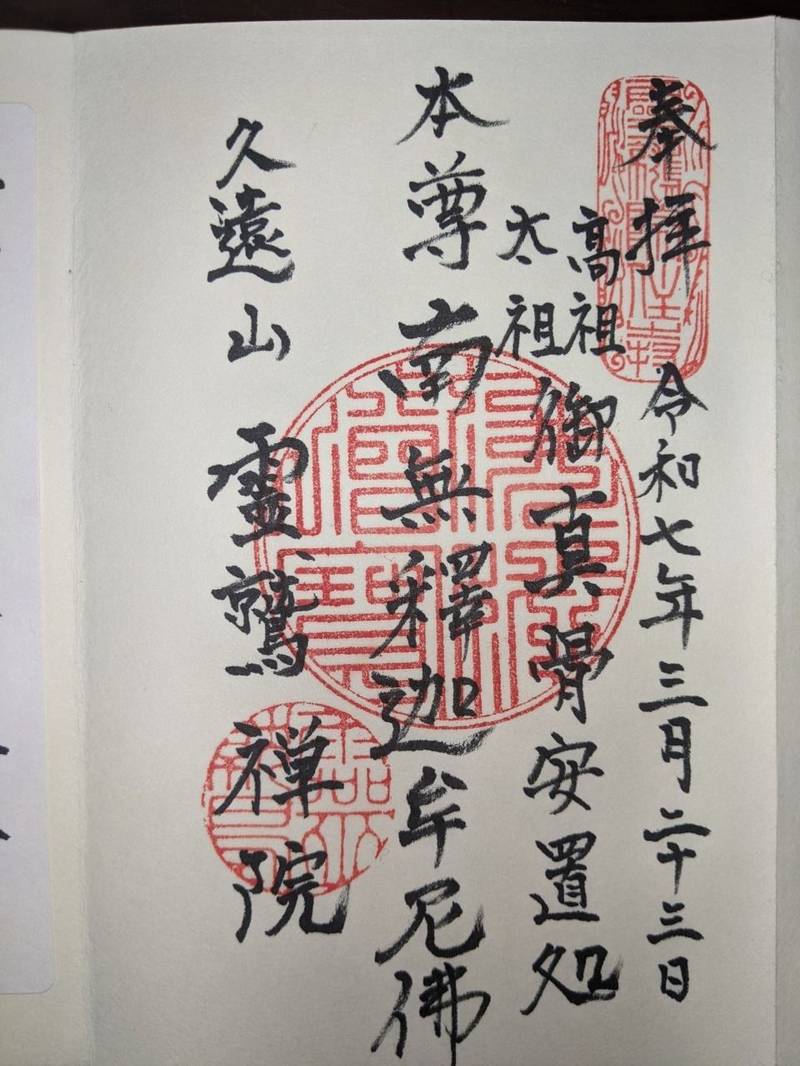 奉拝 令和七年三月二十三日
高祖
太祖
御真骨安置処
本尊南無釋迦牟尼佛
久遠山 靈鷲禅院